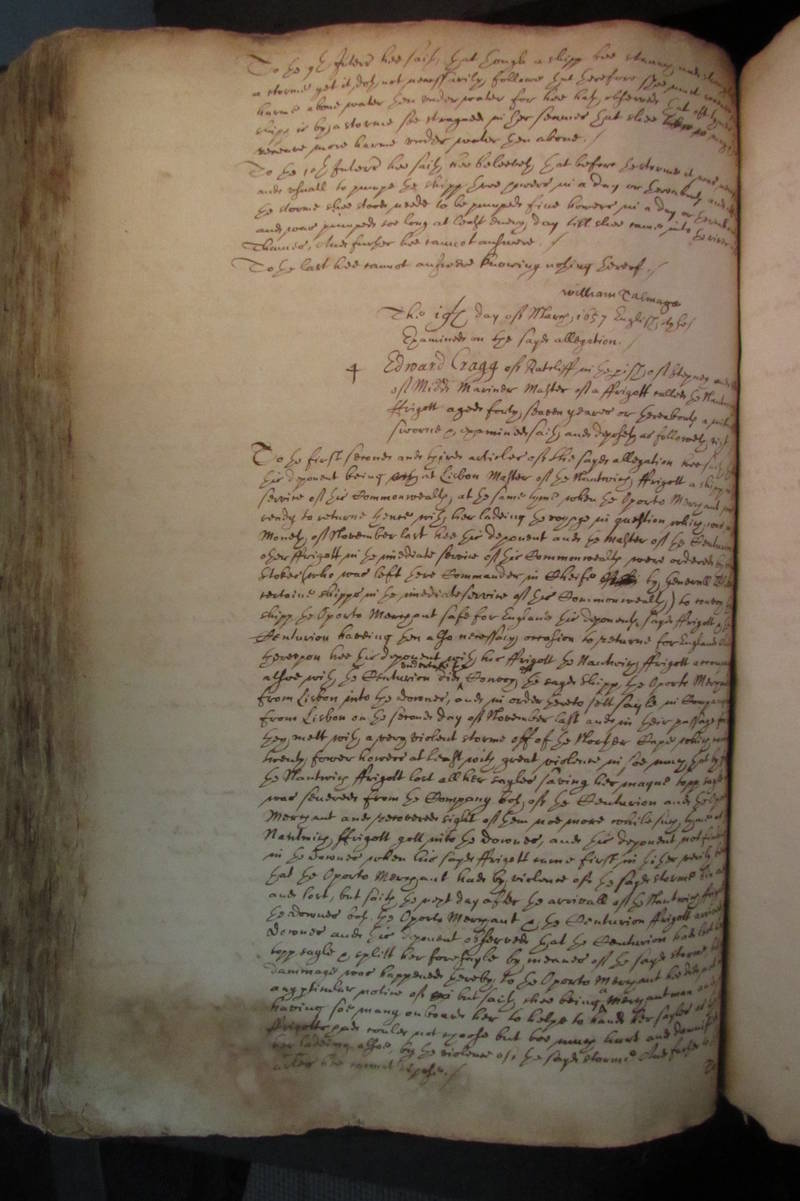 To the 9th Interr hee saith that though a shipp bee strained and
a storme yet it doth not necessarily followe that therefore shee must
harme above water then under water for hee hath observed that oft tymes
shipp is by a storme soe strayned in her seames that shee
receive more harme under water then above. /
To the 10th Interr hee saith hee beleeveth that before the storme it was
and usuall to pumpe the shipp three howers in a day or thereabouts and
the storme shee stood neede to be pumped five howers in a day or
and was pumped soe long at least every day till shee came into the river
Thames, And further hee cannot answere. /
To the last hee cannot answere knowing nothing thereof. /
William Talmage
The 19th day of March 1657 English stile
Examined on the sayd allegation. /
Edward Cragg of Ratcliff in the pish of Stepney and
of Midds Mariner Master of a ffrigott called the Nantwich
ffrigott aged forty seaven yeares or thereabouts a
sworne & examined saith and deposeth as followeth
To the first second and third articles of the sayd allegation hee saith
this deponent being at Lisbon Master of the Nantwich ffrigott a shipp
service of this Commonwealth, at the same tyme when the Oporto Merchant
ready to returne thence with her ladeing the voyage in question which was
Moneth of November last hee this deponent and the Master of the Centurion
other ffrigott in the imediate service of this Commonwealth were ordered by
Stokes (who was left there Commander in Cheife by Generall
certaine shipps in the imediate service of this Commonwealth) to convoy
shipp the Oporto Merchant safe for England this deponents sayd ffrigott &
Centurion haveing then also necessary occasion to returne for England
thereupon hee this deponent with his ffrigott the Nantwich ffrigott
alsoe with the Centurion did undertake the Convoy of the sayd shipp the Oporto Merchant
from Lisbon into the downes, and in order thereto sett sayle in Company
from Lisbon on the second day of November last and in their passage
they mett with a very violent storme off of the Norther Cape which
twenty fower howers at least with great violence in soe much that
the Nantwich ffrigott lost all her sayles saving her mayne topp sayle
was severed from the Company both of the Centurion and the Oporto
Merchant and recovered sight of them noe more untill such tyme
Nantwich ffrigott gott into the downes, and this deponent not
in the downes when his sayd ffrigott came first in thither verily
that the Oporto Merchant had by violence of the sayd storme
and lost, but saith the next day after the arrivall of the Nantwich
the downes both the Oporto Merchant & the Centurion ffrigott arrived
downes and this deponent observed that the Centurion had lost
topp sayle & splitt her foresayle by meanes of the sayd storme
dammage was happened thereby to the Oporto Merchant hee
any pticular notice of but saith shee being a Merchantman and
having soe many on board her to helpe to hand her sayles as
ffrigotts had could not choose but bee much hurt and
her ladeing alsoe by the violence of the sayd storme And further
hee cannot depose. /